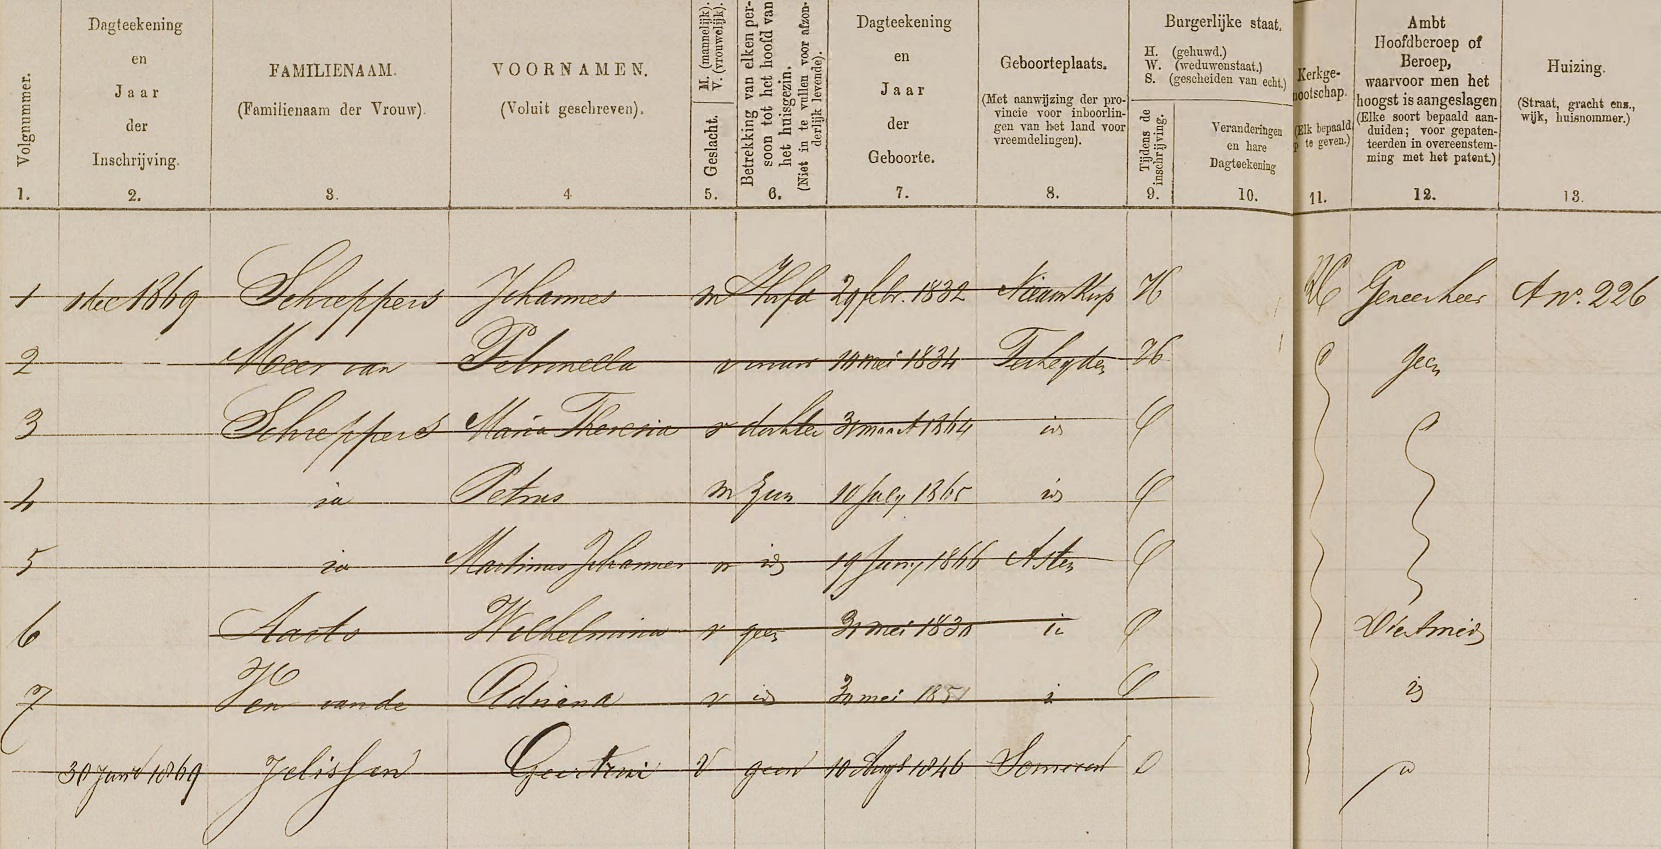 Volgnummer. 1.
Dagteekening en Jaar der Inschrijving. 2.
FAMILIENAAM. (Familienaam der Vrouw). 3.
VOORNAMEN. (Voluit geschreven). 4
Geslacht. M. (mannelijk). V. (vrouwelijk). 5.
Betrekking van elken persoon tot het hoofd van het huisgezin. (Niet in te vullen voor afzonderlijk levende). 6.
Dagteekening en Jaar der Geboorte. 7.
Geboorteplaats. (Met aanwijzing der provincie voor inboorlingen van het land voor vreemdelingen). 8.
Burgerlijke staat.
H. (gehuwd.)
W. (weduwenstaat.)
S. (gescheiden van echt.)
Tijdens de inschrijving. 9.
Veranderingen en hare Dagteekening 10.
Kerkgenootschap. (Elk bepaald te geven.) 11.
Ambt Hoofdberoep of Beroep, waarvoor men het hoogst is aangeslagen (Elke soort bepaald aanduiden; voor gepatenteerden in overeenstemming met het patent.) 12.
Huizing. (Straat, gracht enz., wijk, huisnommer.) 13.
1 1 dec 1869 Schreppers Johannes m Hoofd 29 febr. 1832 Nieuwkuyk H RC Geneesheer A no. 226
2 Meer van Petronella v vrouw 10 mei 1834 Terheyden H geen
3 Schreppers Maria Theresia v dochter 31 maart 1864 id O
4 id Petrus m zoon 10 July 1865 id O
5 id Martinus Johannes m id 19 Juny 1866 Asten O
6 Aarts Wilhelmina v geen mei 1830 id O Dienstmeid
7 Ven van de Adriana v id mei 1851 id O id
30 Jan 1869 Jelissen v geen 10 Augt 1846 Someren O id